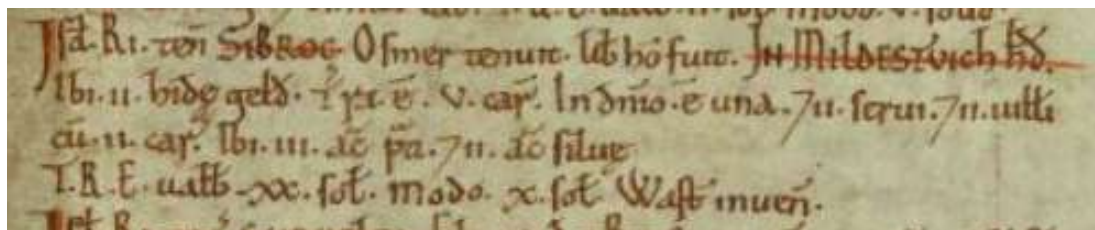 Isd̄. Ri. ten̄ SIBROC. Osmer tenuit. lib̄ hō fuit. IN MILDESTVICH HD̄.
Ibi. ii. hidę geld̄. Tr̄a. ē. v. car̄. In dn̄io. ē una. ⁊ ii. serui. ⁊ ii. uill̄i
cū. ii. car̄. Ibi. iii. āc p̄a. ⁊ ii. āc siluę
T.R.E. ualb̄. xx. sol̄. modo. x. sol̄. Wast̄ inuen̄.